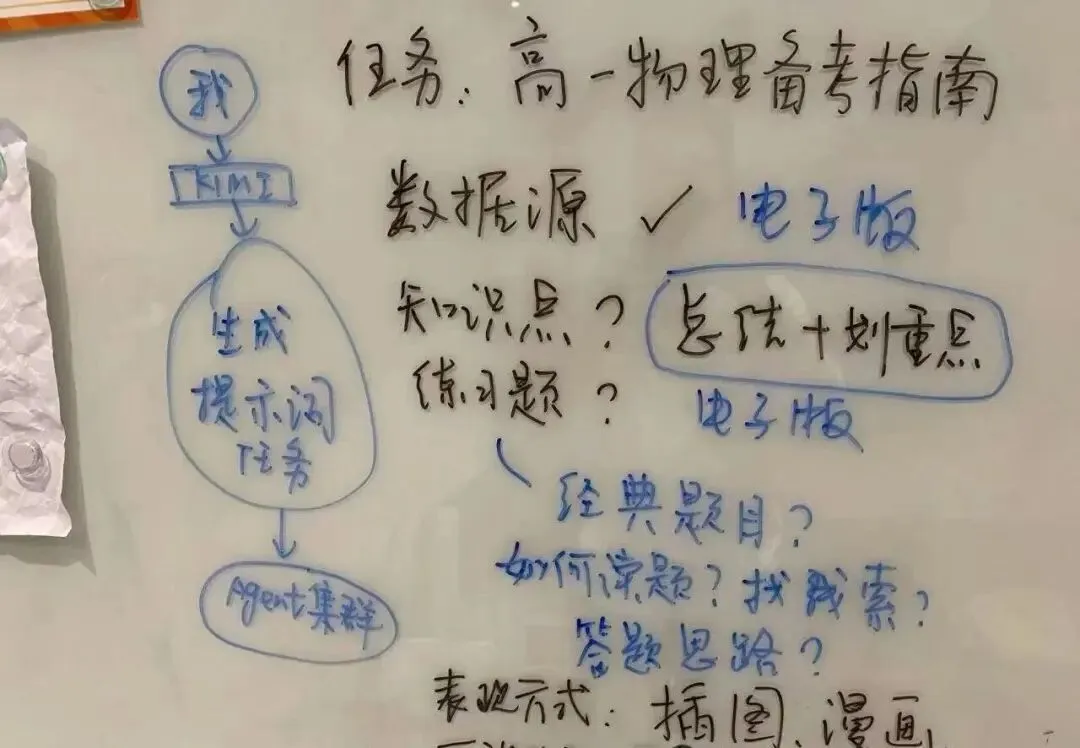 我
KIMI
生成
提示词
任务
Agent集群
任务: 高一物理备考指南
数据源 ✓ 电子版
知识点? 总结+划重点
练习题? 电子版
经典题目?
如何读题? 找线索?
答题思路?
表现方式: 插图、漫画